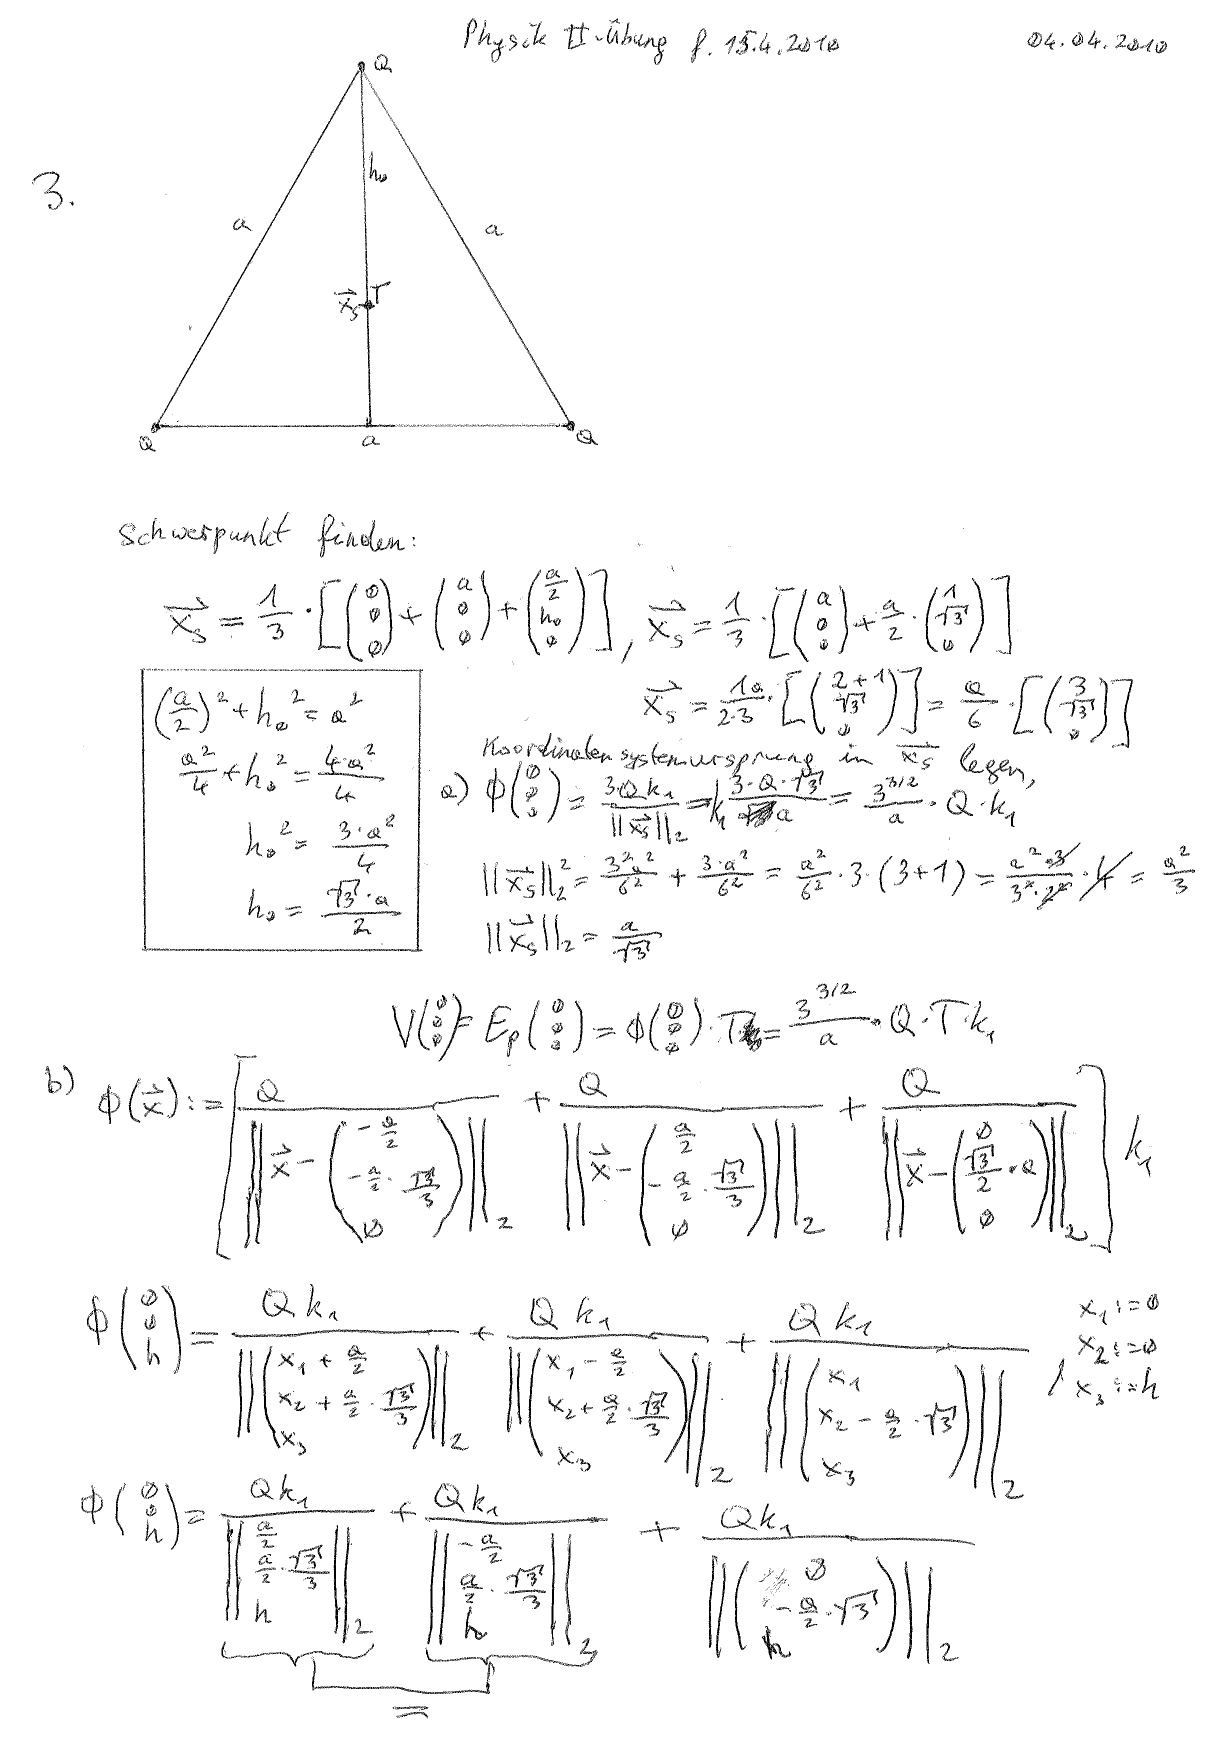 Physik II-Übung f. 15.4.2010 04.04.2010
Q
3.
h₀
a a
x⃗ₛ T
Q a Q
Schwerpunkt finden:
x⃗ₛ = 1/3 · [(0 0 0) + (a 0 0) + (a/2 h₀ 0)], x⃗ₛ = 1/3 · [(a 0 0) + a/2 · (1 √3 0)]
x⃗ₛ = 1a/2·3 · [(2+1 √3 0)] = a/6 · [(3 √3 0)]
(a/2)² + h₀² = a²
a²/4 + h₀² = 4·a²/4
h₀² = 3·a²/4
h₀ = √3·a/2
Koordinatensystemursprung in x⃗ₛ legen,
a) ϕ(0 0 0) = 3·Q k₁/||x⃗ₛ||₂ = k₁ 3·Q·√3/a = 3^(3/2)/a · Q·k₁
||x⃗ₛ||₂² = 3²a²/6² + 3·a²/6² = a²/6² · 3·(3+1) = a²·3/3²·2² · 4 = a²/3
||x⃗ₛ||₂ = a/√3
V(0 0 0) = Eₚ(0 0 0) = ϕ(0 0 0)·T = 3^(3/2)/a · Q·T·k₁
b) ϕ(x⃗) := [Q/||x⃗ − (−a/2 −a/2·√3/3 0)||₂ + Q/||x⃗ − (a/2 −a/2·√3/3 0)||₂ + Q/||x⃗ − (0 √3/2·a 0)||₂] k₁
ϕ(0 0 h) = Q k₁/||(x₁+a/2 x₂+a/2·√3/3 x₃)||₂ + Q k₁/||(x₁−a/2 x₂+a/2·√3/3 x₃)||₂ + Q k₁/||(x₁ x₂−a/2·√3 x₃)||₂ , x₁:=0 x₂:=0 x₃:=h
ϕ(0 0 h) = Qk₁/||a/2 a/2·√3/3 h||₂ + Qk₁/||−a/2 a/2·√3/3 h||₂ + Qk₁/||(0 −a/2·√3 h)||₂
=